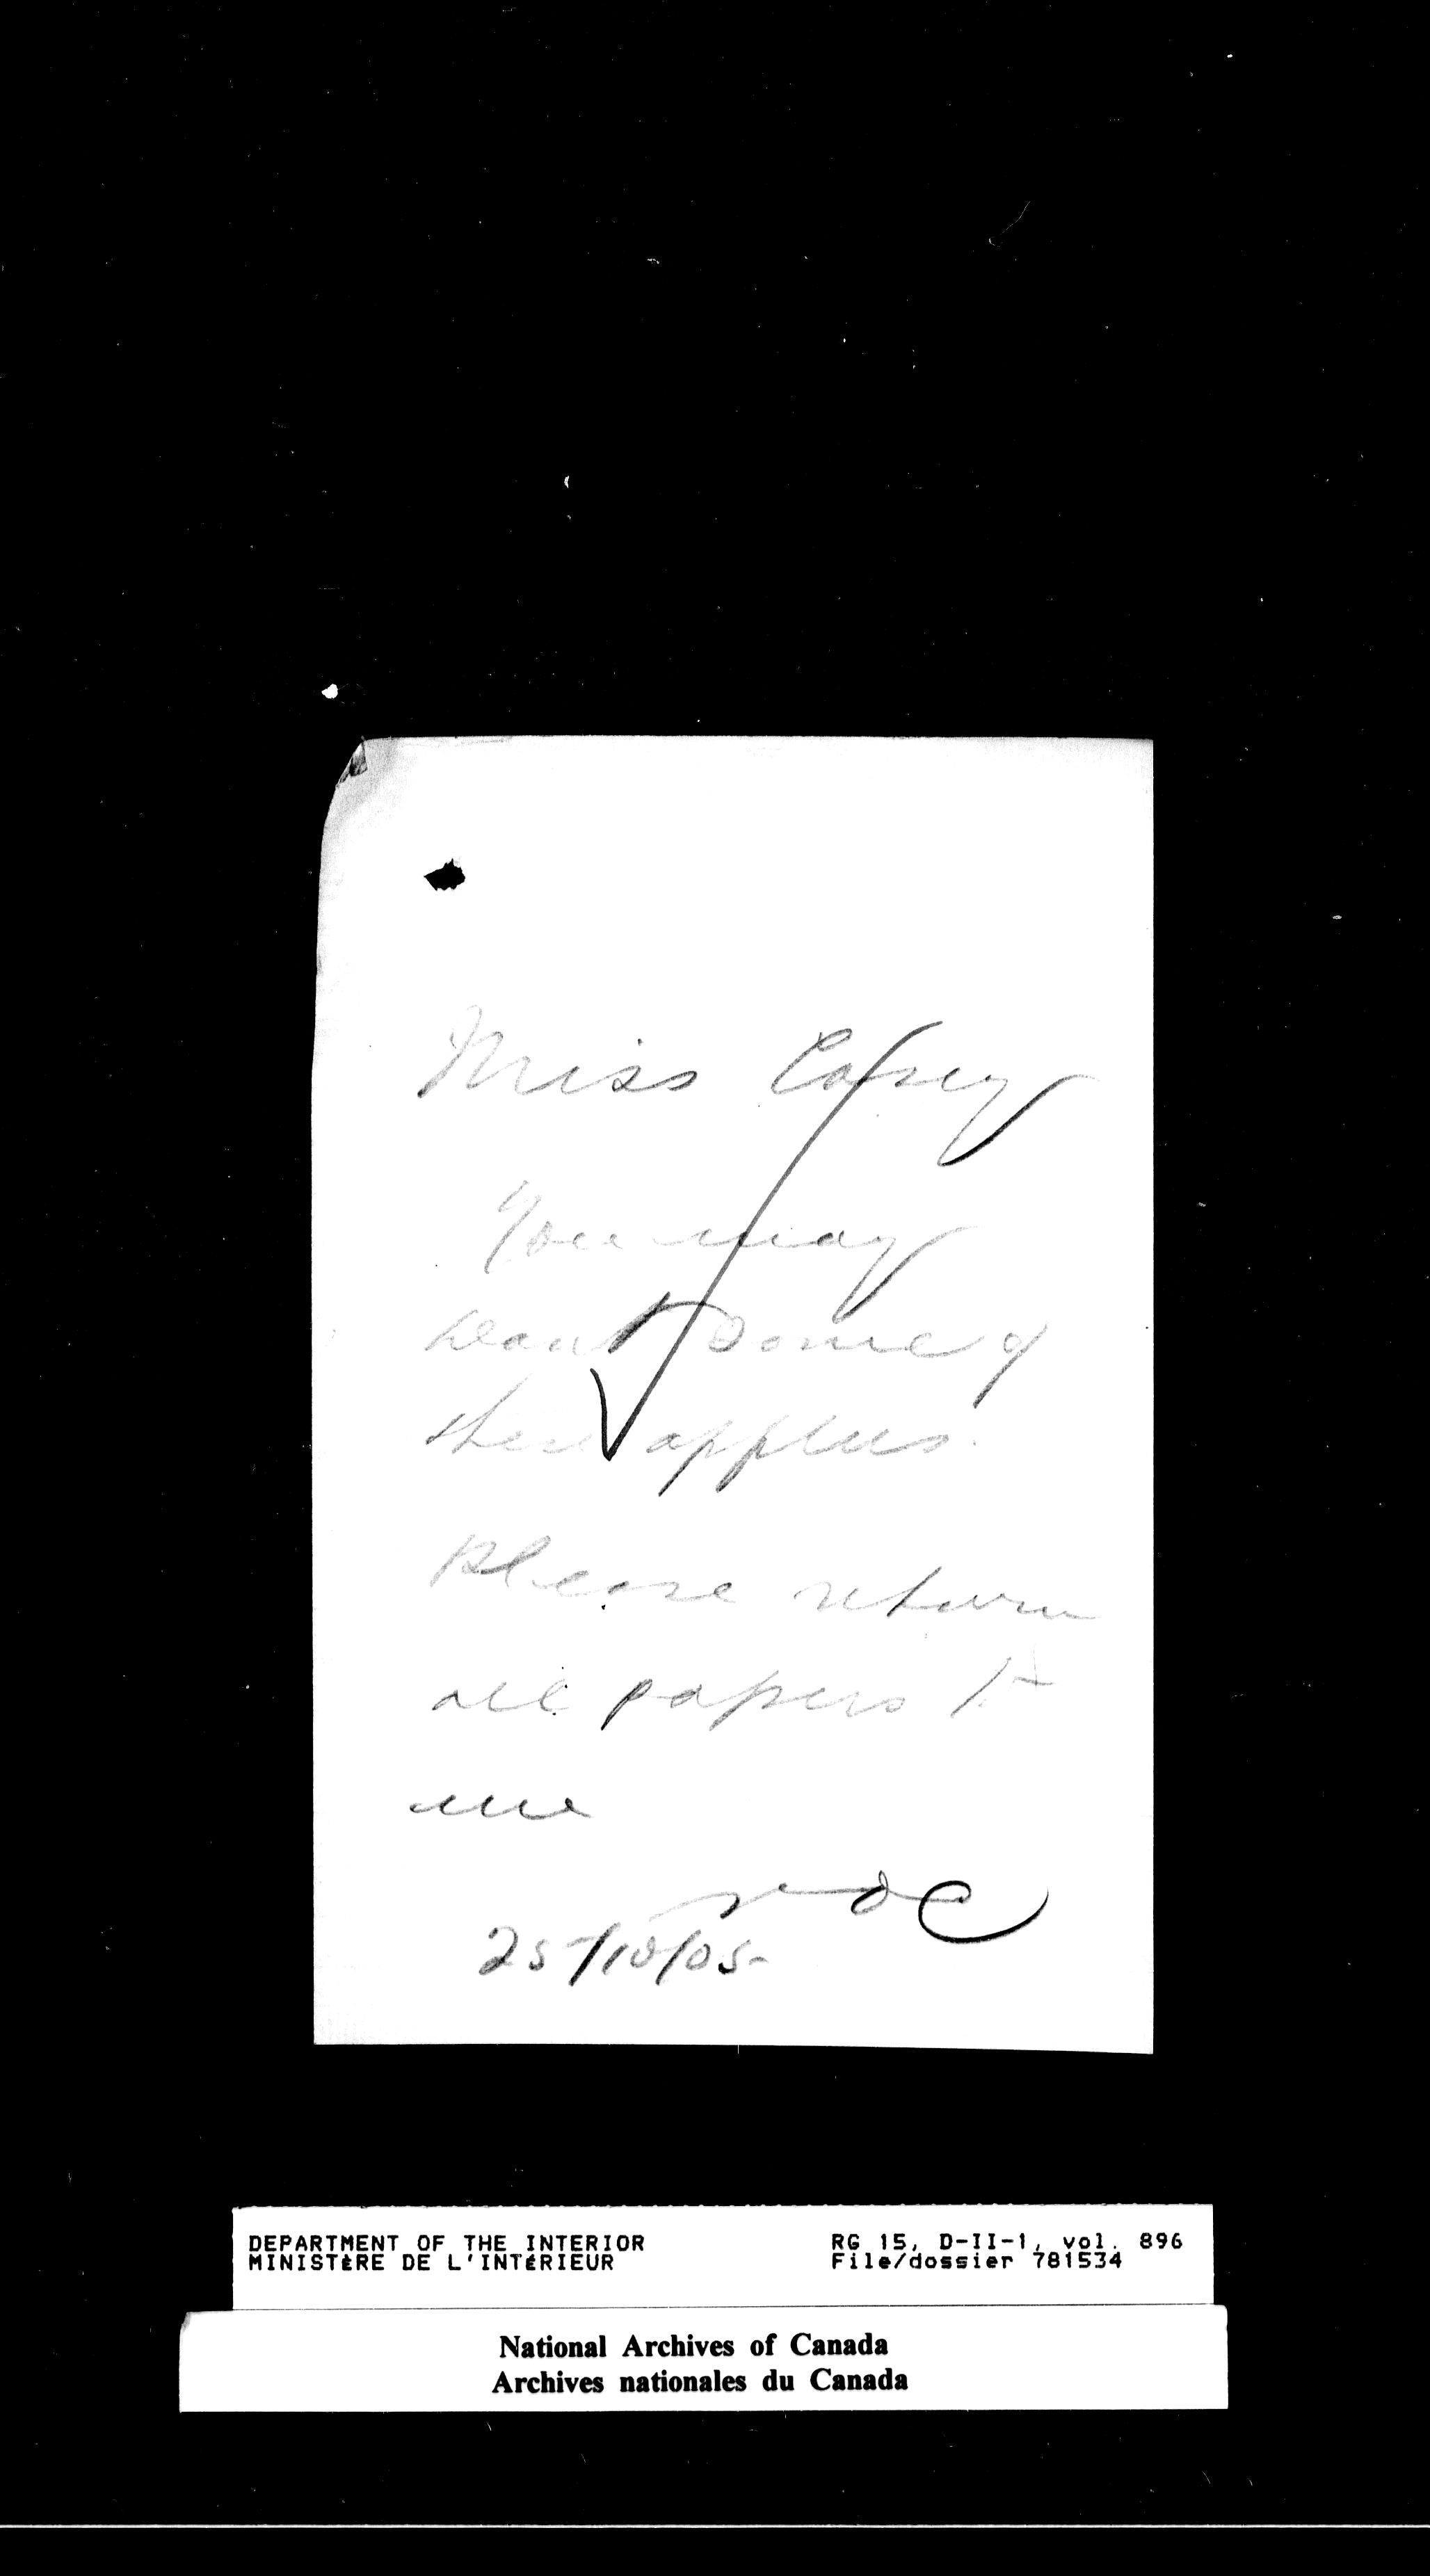 Miss Casey
You may
want some of
these applns.
Please return
all papers to
me
25/10/05
DEPARTMENT OF THE INTERIOR
MINISTÈRE DE L'INTÉRIEUR
RG 15, D-II-1, vol. 896
File/dossier 781534
National Archives of Canada
Archives nationales du Canada